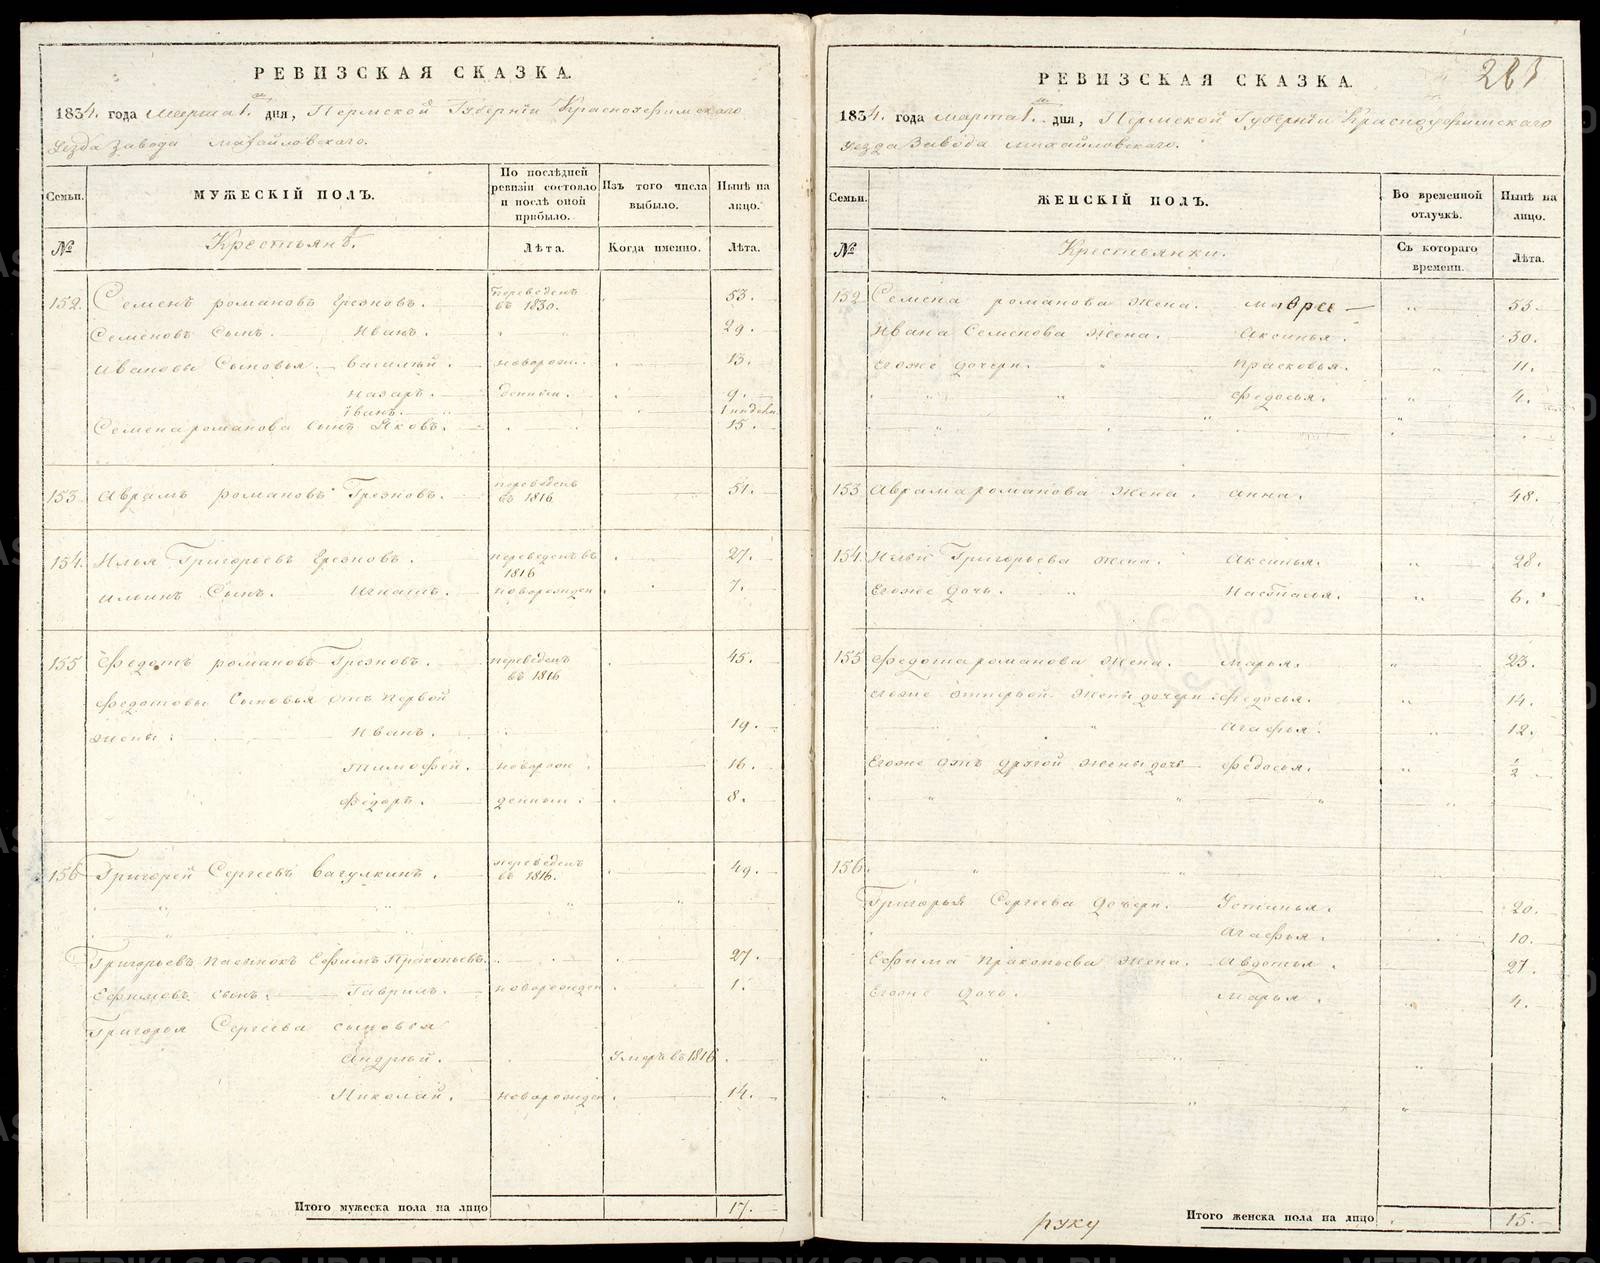 РЕВИЗСКАЯ СКАЗКА.
1834. года марта 1. дня, Пермской Губерніи Красноуфимскаго
уезда завода михайловскаго.
Семьи.
МУЖЕСКІЙ ПОЛЪ.
По послѣдней ревизіи состояло и послѣ оной прибыло.
Изъ того числа выбыло.
Нынѣ на лицо.
№
Крестьянѣ.
Лѣта.
Когда именно.
Лѣта.
152. Семенъ романовъ Грезновъ. переведенъ въ 1830. 53.
Семеновъ Сынъ. Иванъ. 29.
Ивановы Сыновья. василѣй. новорож 13.
назаръ. денныи. 9.
Иванъ. 1 недели
Семена романова Сынъ Яковъ. 15.
153 Аврамъ романовъ Грезновъ. переведенъ въ 1816 51.
154. Илья Григорьевъ Грезновъ. переведенъ въ 1816 27.
Ильинъ Сынъ. Игнатъ. новорожден 7.
155 Федотъ романовъ Грезновъ. переведенъ въ 1816 45.
Федотовы Сыновья отъ первой
жены: Иванъ. 19.
Тимофей. новорож 16.
Федоръ. денныи. 8.
156 Григорей Сергеевъ вагулкинъ. переведен въ 1816. 49.
Григорьевъ пасынокъ Ефимъ Пракопьевъ. 27.
Ефимовъ сынъ. Гаврилъ. новорожден 1.
Григорья Сергеева сыновья
Андрѣй. Умеръ въ 1816
Николай. новорожден 14.
Итого мужеска пола на лицо 17.
РЕВИЗСКАЯ СКАЗКА.
1834. года марта 1. дня, Пермской Губерніи Красноуфимскаго
уезда завода михайловскаго.
Семьи.
ЖЕНСКІЙ ПОЛЪ.
Во временной отлучкѣ.
Нынѣ на лицо.
№
Крестьянки.
Съ котораго времени.
Лѣта.
152 Семена романова жена. мавра 55.
Ивана Семенова жена. Аксинья. 30.
Егоже дочери. Прасковья. 11.
Федосья. 4.
153 Аврама романова жена. анна. 48.
154 Ильи Григорьева жена. Аксинья. 28.
Егоже дочь. Настасья. 6.
155 Федота романова жена. марья. 23.
егоже отпервой жены дочери Федосья. 14.
Агафья. 12.
Егоже отъ другой жены дочь Федосья. 1/2
156.
Григорья Сергеева дочери. Устинья. 20.
Агафья. 10.
Ефима Пракопьева жена. Авдотья. 27.
Егоже дочь. Марья. 4.
руку
Итого женска пола на лицо 15.